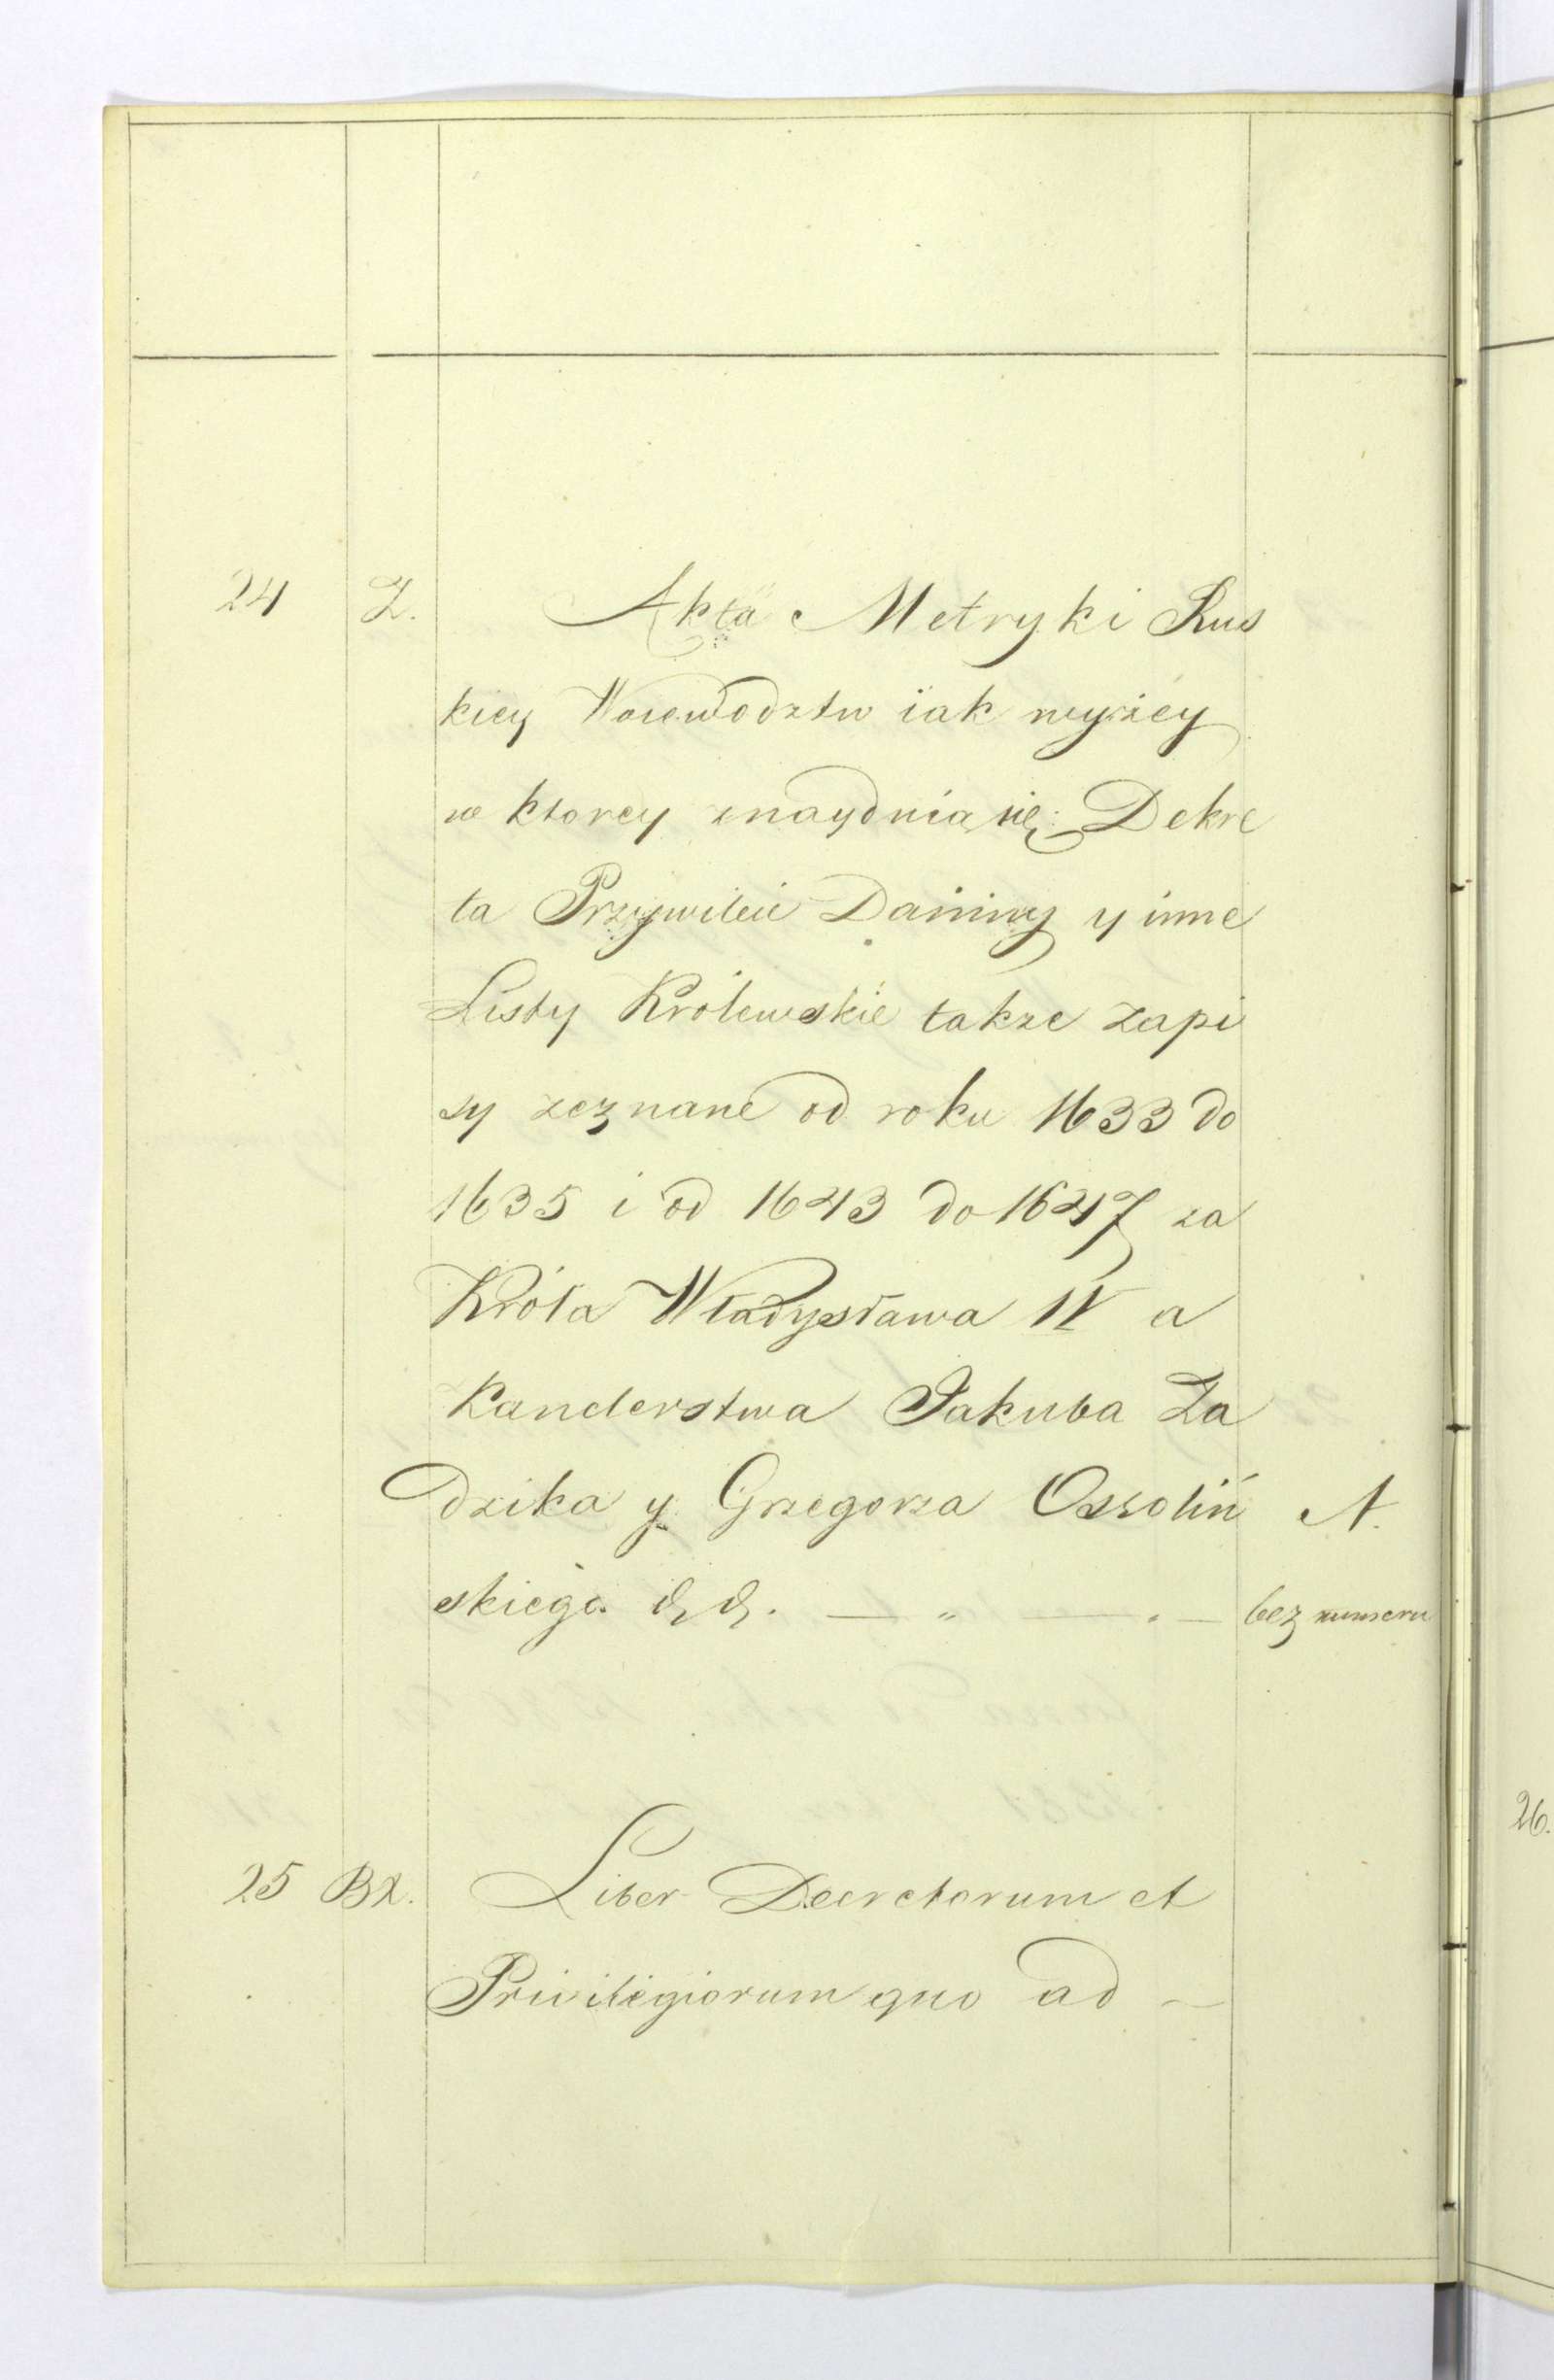 24 Z. Akta Metryki Rus
kiey Woiewodztw iak wyżey
w ktorey znayduia się Dekre
ta Przywileie Daniny y inne
Listy Królewskie takze zapi
sy zeznane od roku 1633 do
1635 i od 1643 do 1647 za
Króla Władysława IV a
Kanclerstwa Jakuba Za
dzika y Grzegorza Ossoliń A.
skiego &&. — " — . — bez numeru
25 BX. Liber Decretorum et
Privilegiorum quo ad ~
26.